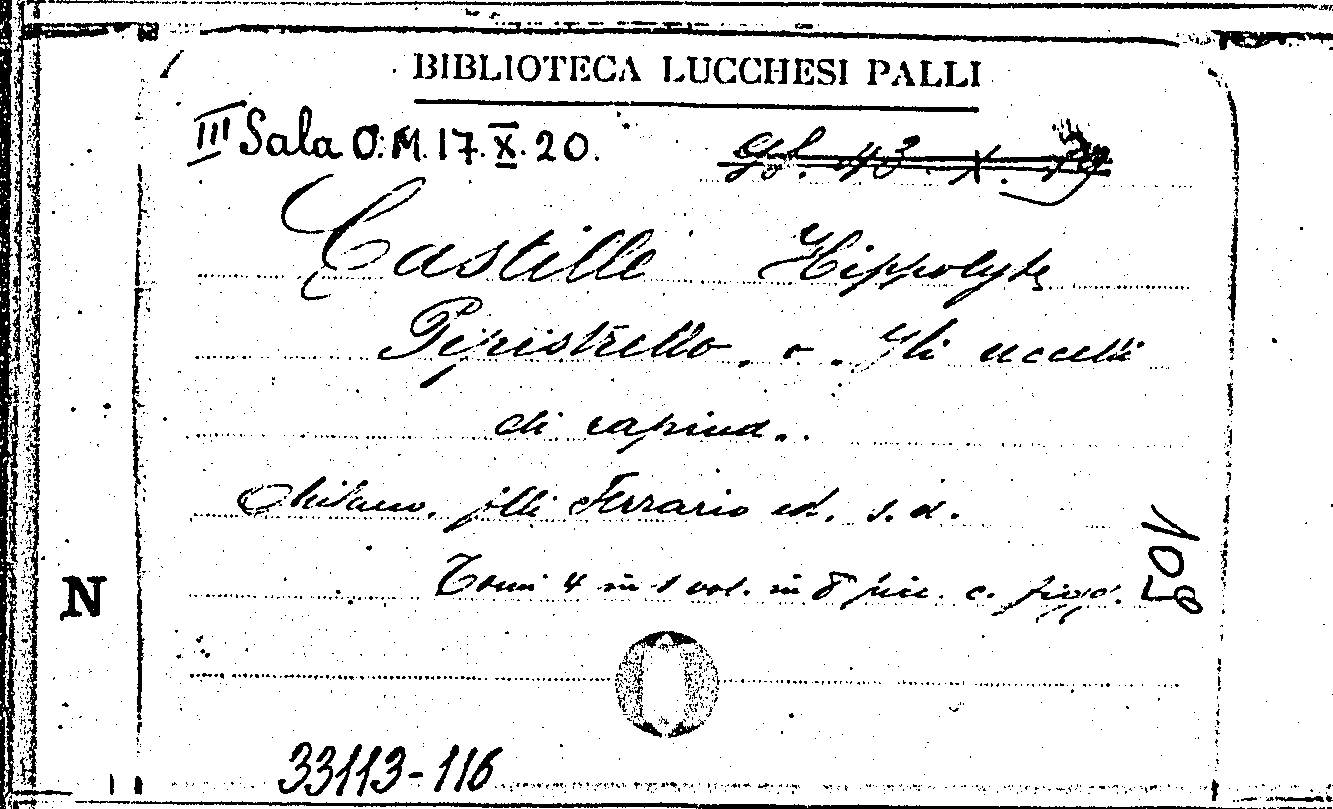 BIBLIOTECA LUCCHESI PALLI
III Sala O.M.17.X.20.
Castille Hippolyte
Pipistrello. o. Gli uccelli
di rapina.
Milano. flli Ferrario ed. s.d.
Tomi 4 in 1 vol. in 8 picc. c. figg.
N
33113-116